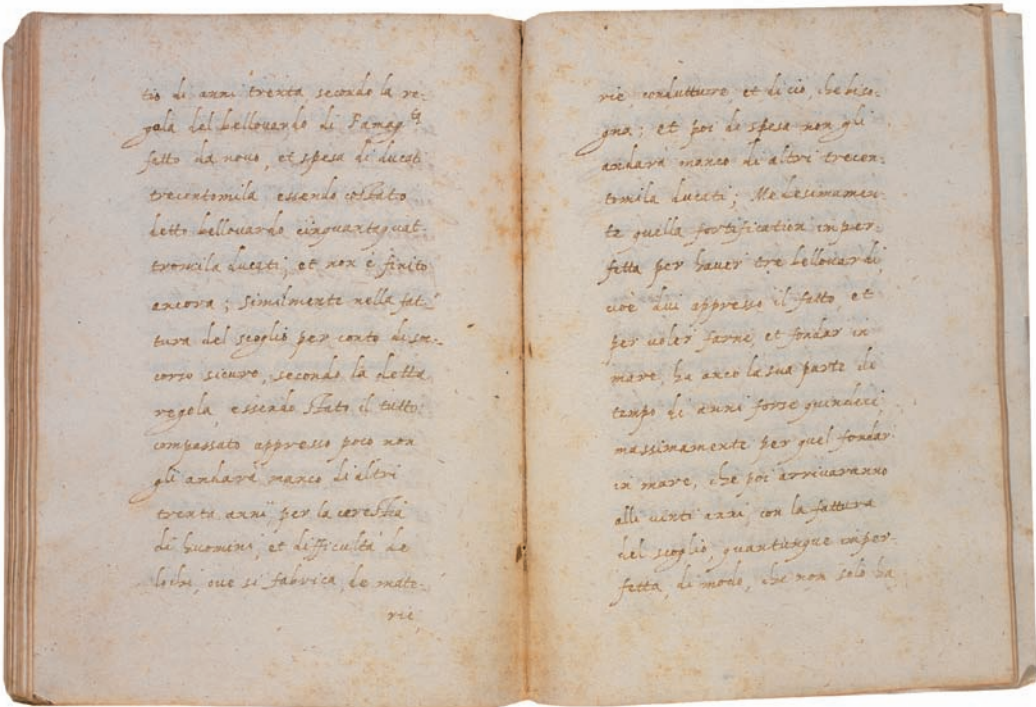 tio di anni trenta secondo la re-
gola del bellouardo di Famag.ta
fatto da nouo, et spesa di ducati
trecentomila essendo costato
detto bellouardo cinquantaquat-
tromila ducati, et non è finito
ancora; similmente nella fat-
tura del scoglio per conto di soc-
corso sicuro, secondo la detta
regola, essendo stato il tutto
compassato appresso poco non
gli andarà manco di altri
trenta anni, per la carestia
di huomini, et difficultà de
lochi, oue si fabrica, de mate-
rie
rie, condutture et di ciò, che biso-
gna; et poi de spesa non gli
andarà manco di altri trecen-
tomila ducati; Medesimamen-
te quella fortification imper-
fetta per hauer tre bellouardi,
cioè dui appresso il fatto, et
per uoler farne, et fondar in
mare, ha anco la sua parte di
tempo di anni forse quindeci,
massimamente per quel fondar
in mare, che poi arriuaranno
alli uinti anni, con la fattura
del scoglio, quantunque imper-
fetta, di modo, che non solo ha